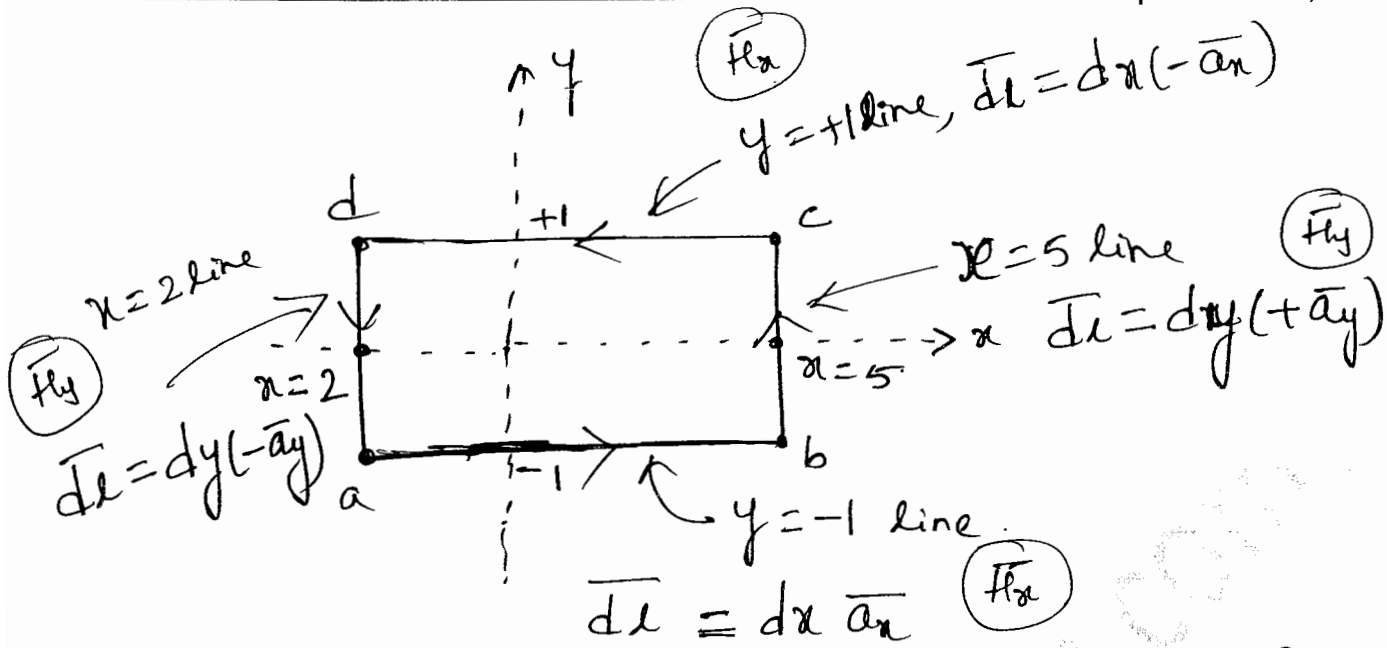 y
H̅x
y = +1 line, d̅l̅ = dx(-a̅x)
d
+1
c
x = 2 line
x = 5 line
H̅y
d̅l̅ = dy(+a̅y)
x
H̅y
x = 2
x = 5
d̅l̅ = dy(-a̅y)
a
-1
b
y = -1 line.
d̅l̅ = dx a̅x
H̅x